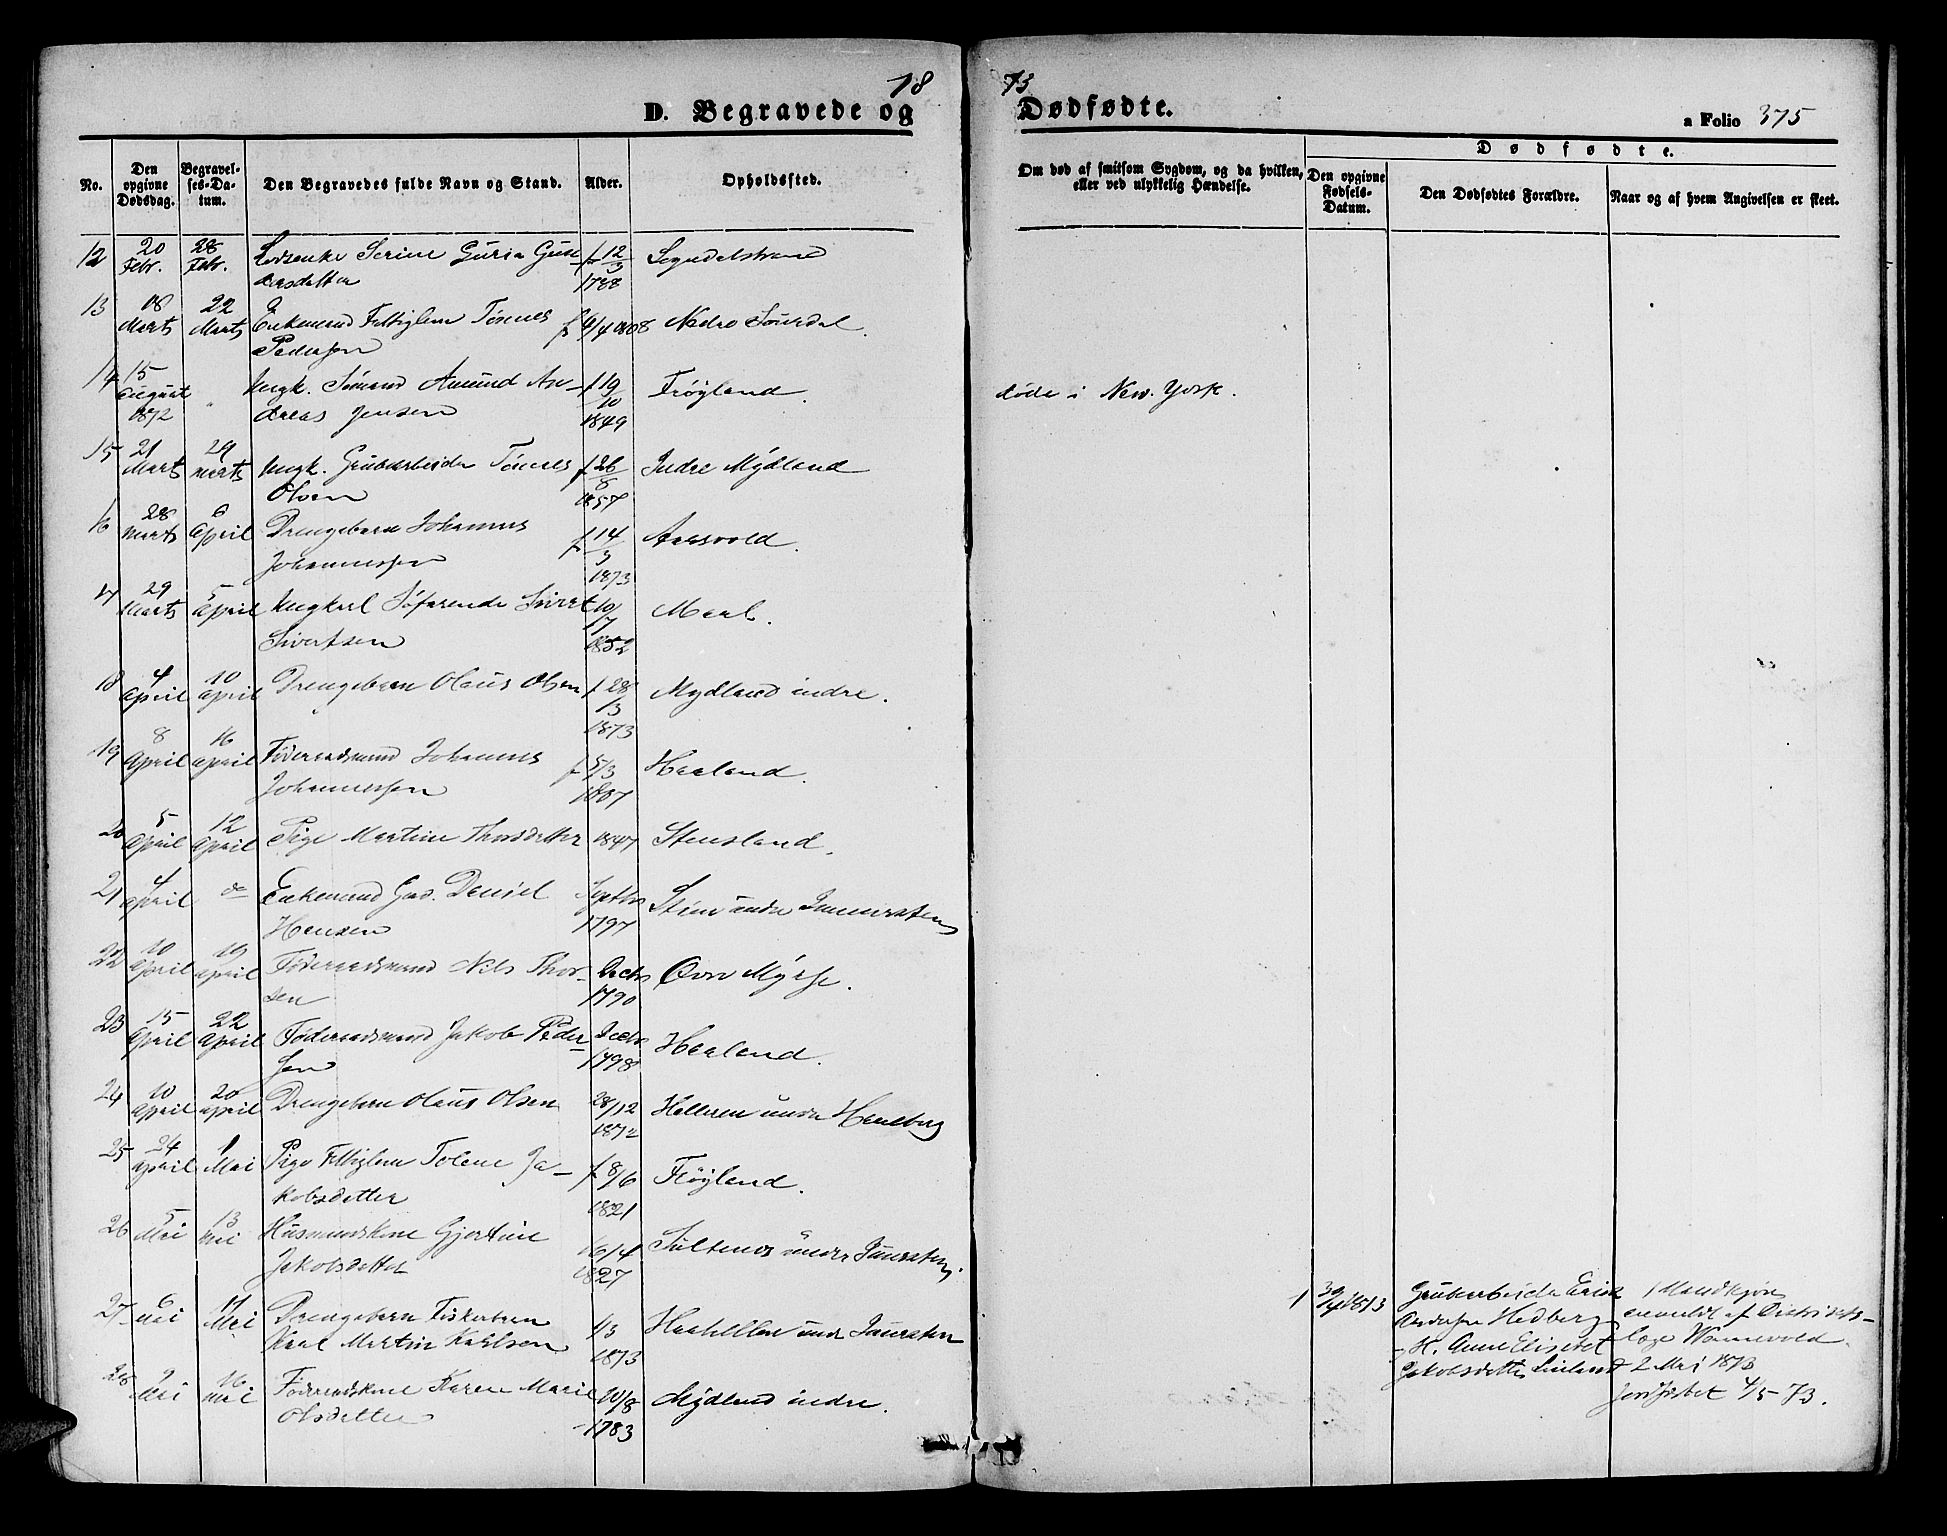 18
73
D. Begravede og
Dødfødte.
a Folio 375
No.
Den opgivne Dødsdag.
Begravelses-Datum.
Den Begravedes fulde Navn og Stand.
Alder.
Opholdssted.
Om død af smitsom Sygdom, og da hvilken, eller ved ulykkelig Hændelse.
Dødfødte.
Den opgivne Fødsels-Datum.
Den Dødfødtes Forældre.
Naar og af hvem Angivelsen er skeet.
12 20 Febr. 28 Febr. Serine Guria
f 12/3 1788
13 18 Marts 22 Marts Enkemand Fattiglem Tønnes
Pedersen f 6/4 1808 Nedre
14 15 August 1872 " Ungk. Sømand Amund An-
dreas Jensen f 19/10 1849 Frøyland. døde i New-York.
15 21 Marts 29 Marts Ungk. Grubearbeider Tønnes
Olsen f 26/8 1857 Indre Mydland
16 28 Marts 6 April Drengebarn Johannes
Johannessen f 14/3 1873 Aarsvold.
17 29 Marts 5 April Ungkarl Søfarende Sivert
Sivertsen 19/7 1852
18 4 April 10 April Drengebarn Olaus Olsen f 28/3 1873 Mydland indre.
19 8 April 16 April Føderaadsmand Johannes
Johannessen f 5/3 Haaland.
20 5 April 12 April Pige Martine Thorsdatter 1847 Stensland.
21 4 April do Enkemand Daniel
Hansen Septbr 1797 under
22 10 April 19 April Føderaadsmand Nils Thor-
sen Decbr 1790
23 15 April 22 April Føderaadsmand Jakob Peder-
sen Decbr 1798 Haaland.
24 10 April 20 April Drengebarn Olaus Olsen 28/12 1872 Helleren under
25 24 April 1 Mai Pige Fattiglem Tolene Ja-
kobsdatter f 8/6 1821 Frøyland.
26 5 Mai 13 Mai Husmandskone Gjertine
Jakobsdatter 16/4 1827 under
27 6 Mai 14 Mai Drengebarn Fiskerbarn
Karl Martin Karlsen 1/3 1873 under
28 9 Mai 16 Mai Føderaadskone Karen Marie
Olsdatter 10/8 1783 Mydland indre.
1 30/4 1873 Grubearbeider Erik 1 Mandkjøn
Hedberg anmeldt af Distrikts-
H. Anne Elisabet læge
Jakobsdatter 2 Mai 1873
Jordfæstet 4/5-73.